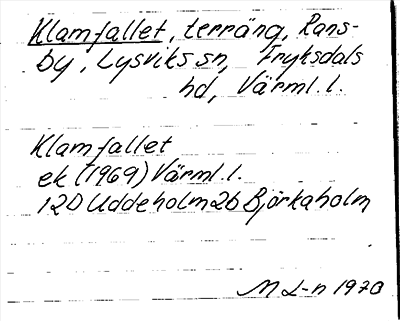 Klamfallet, terräng, Rans-
by, Lysviks sn, Fryksdals
hd, Värml. l.
Klamfallet
ek (1969) Värml. l.
12D Uddeholm 2b Björkaholm
M L-n 1970